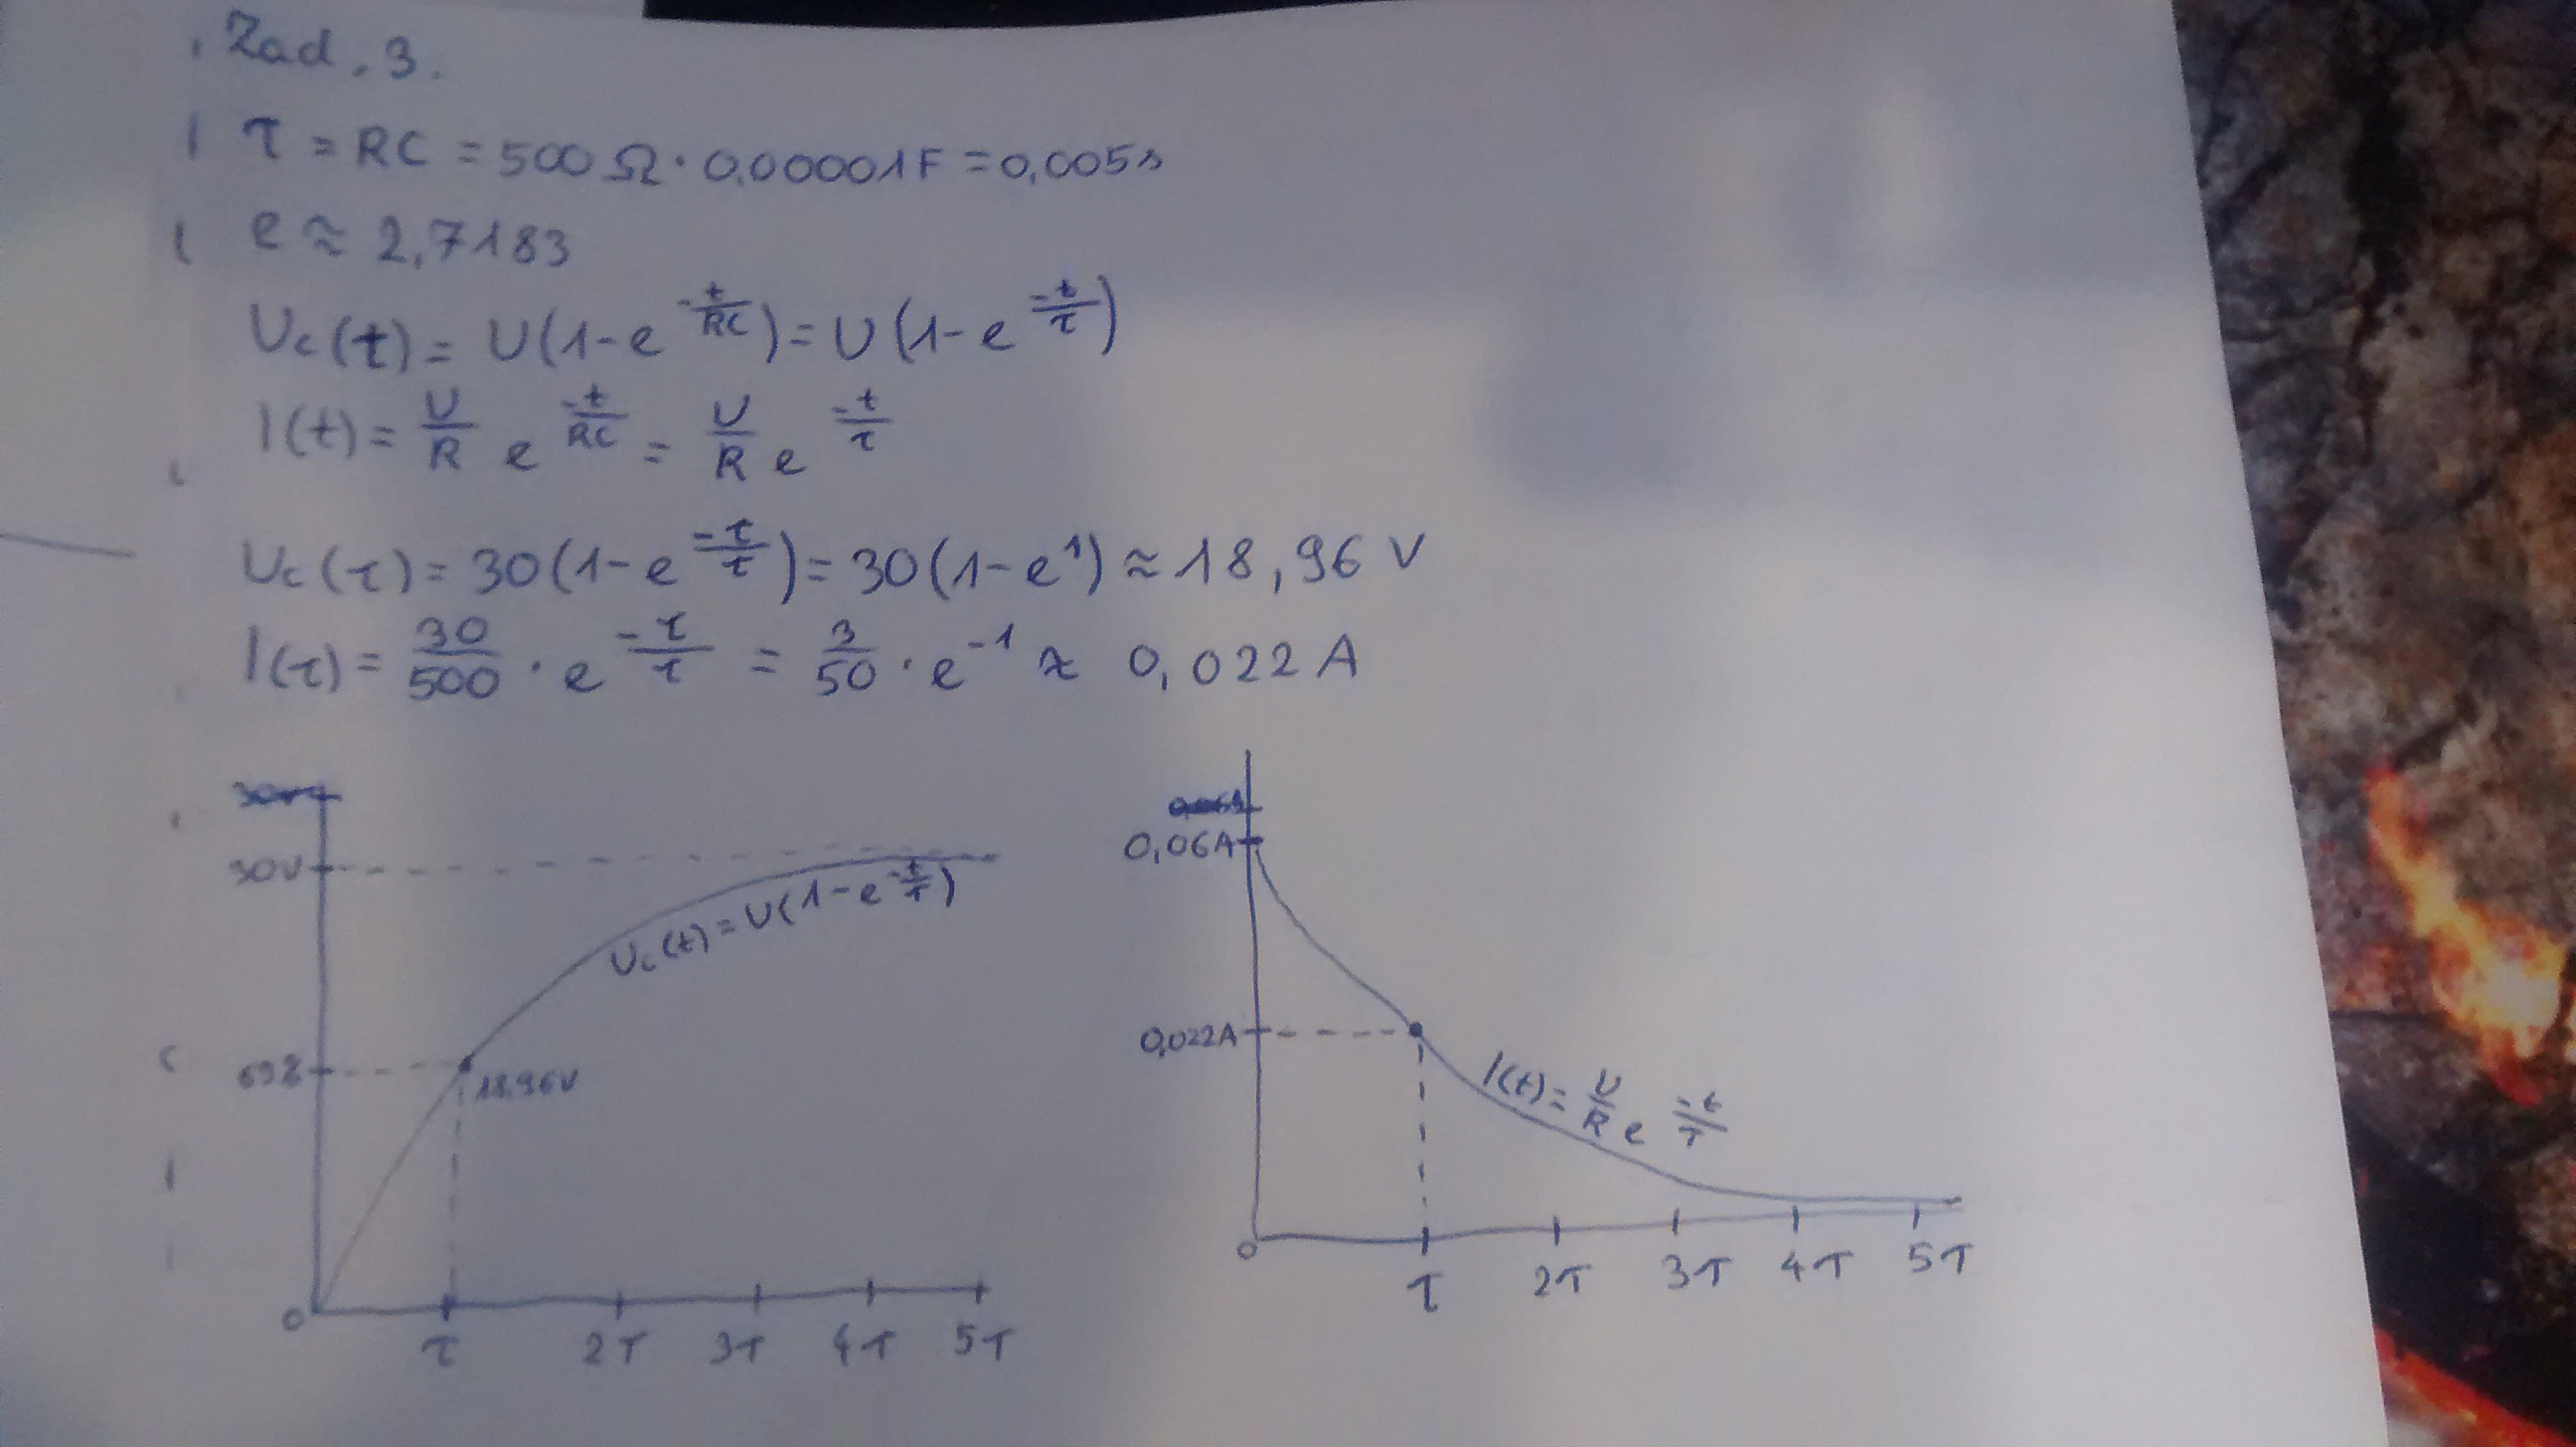 Zad. 3.
τ = RC = 500 Ω · 0,00001F = 0,005s
e ≈ 2,7183
Uc(t) = U(1-e^(-t/RC)) = U(1-e^(-t/τ))
I(t) = U/R e^(-t/RC) = U/R e^(-t/τ)
Uc(τ) = 30(1-e^(-τ/τ)) = 30(1-e^1) ≈ 18,96 V
I(τ) = 30/500 · e^(-τ/τ) = 3/50 · e^-1 ≈ 0,022 A
30V
Uc(t) = U(1-e^(-t/τ))
18,96V
0
τ 2τ 3τ 4τ 5τ
0,06A
0,022A
I(t) = U/R e^(-t/τ)
0
τ 2τ 3τ 4τ 5τ